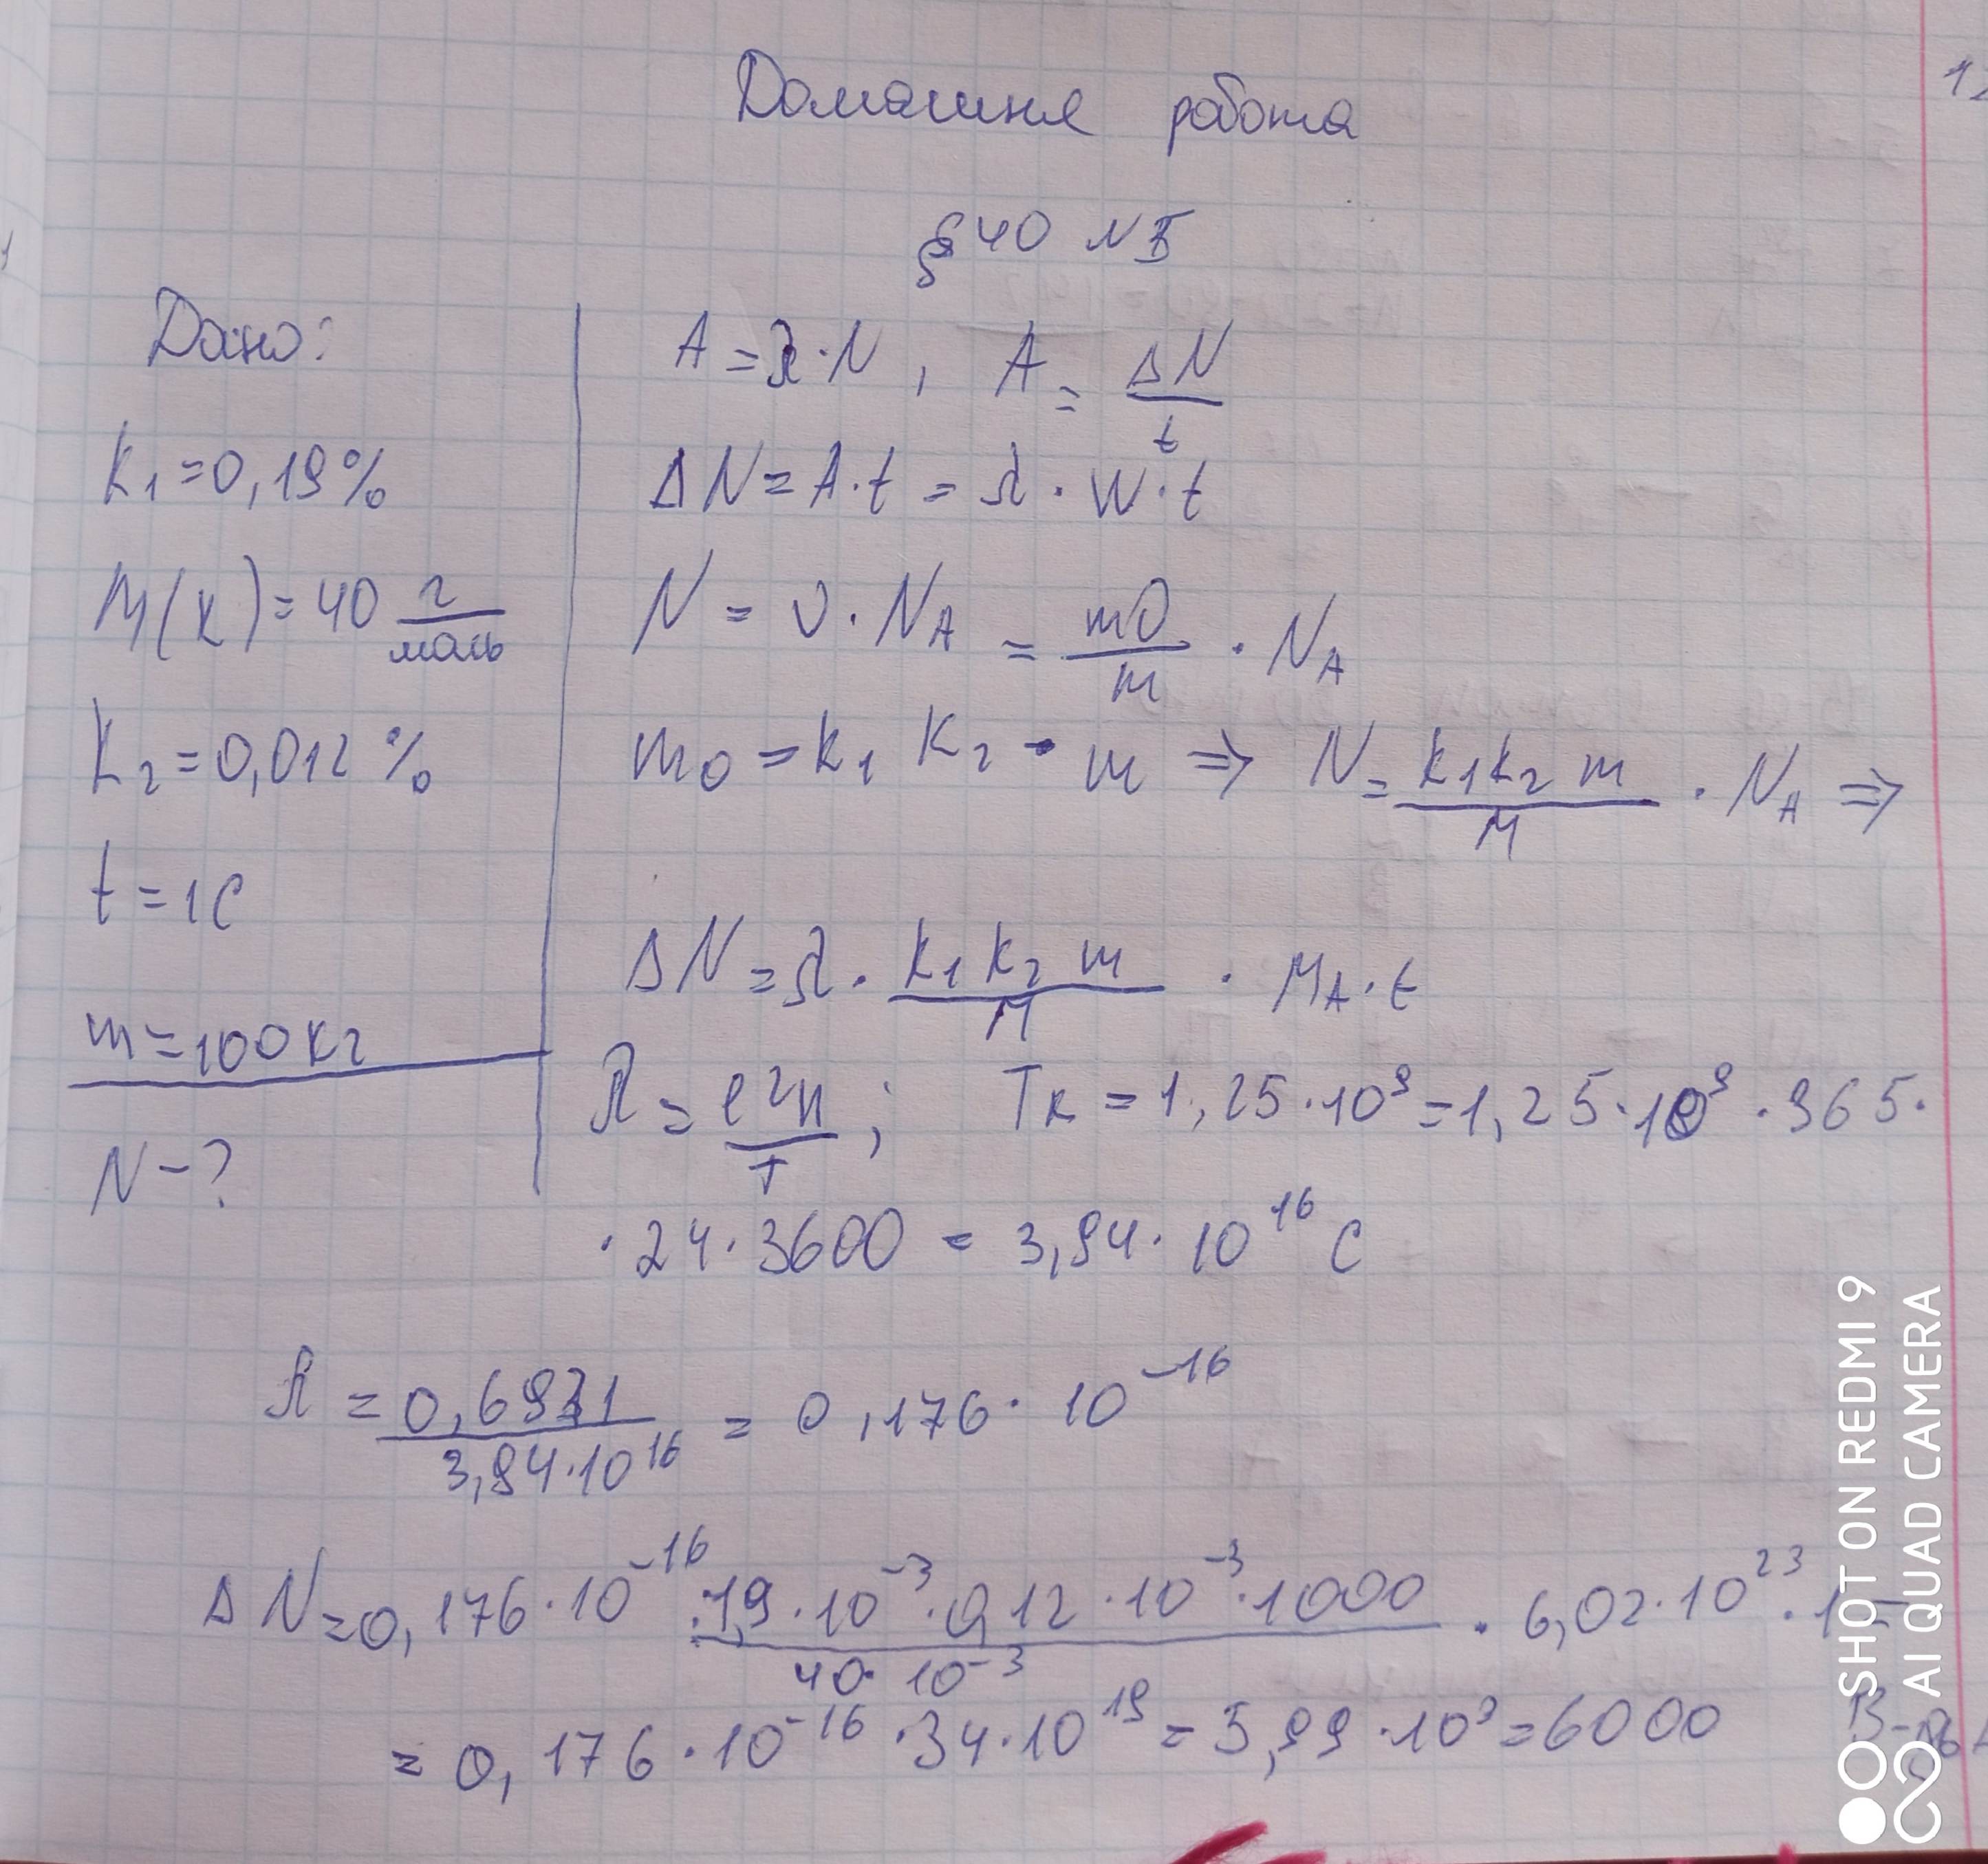 Домашня робота
§40 №5
Дано:
K₁=0,19%
M(K)=40 г/моль
K₂=0,012%
t=1с
m=100кг
N-?
A=λ·N, A=ΔN/t
ΔN=A·t=λ·W·t
N=υ·N_A=m0/m·N_A
m₀=k₁ K₂·m ⇒ N=k₁k₂ m/M·N_A ⇒
ΔN=λ·k₁k₂ m/M·M_A·t
λ=ℓ2n/T; Tк=1,25·10⁹=1,25·10⁹·365·
·24·3600=3,94·10¹⁶ С
λ=0,6931/3,94·10¹⁶=0,176·10⁻¹⁶
ΔN=0,176·10⁻¹⁶·1,9·10⁻³·0,12·10⁻³·1000/40·10⁻³·6,02·10²³·1=
=0,176·10⁻¹⁶·34·10¹⁹=5,99·10³=6000
SHOT ON REDMI 9
AI QUAD CAMERA